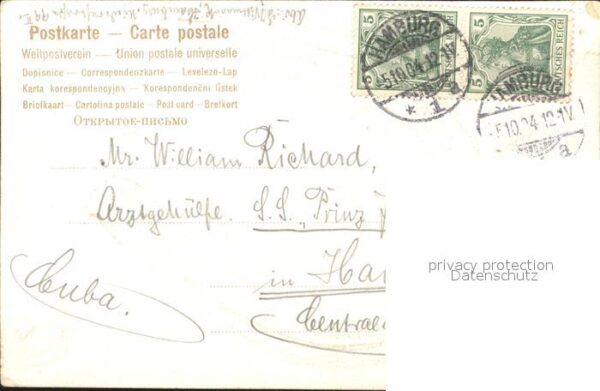 Postkarte — Carte postale
Weltpostverein — Union postale universelle
Dopisnice — Correspondenzkarte — Levelező-Lap
Karta korespondencyjna — Korespondenční lístek
Briefkaart — Cartolina postale — Post card — Brefkort
Открытое-письмо
5 5
DEUTSCHES REICH
HAMBURG
5.10.04.12-1V.
* 1 a
HAMBURG
5.10.04.12-1V.
a
Mr. William Richard,
Arztgehülfe. S. S. „Prinz
in Ha
Cuba.
Central
privacy protection
Datenschutz